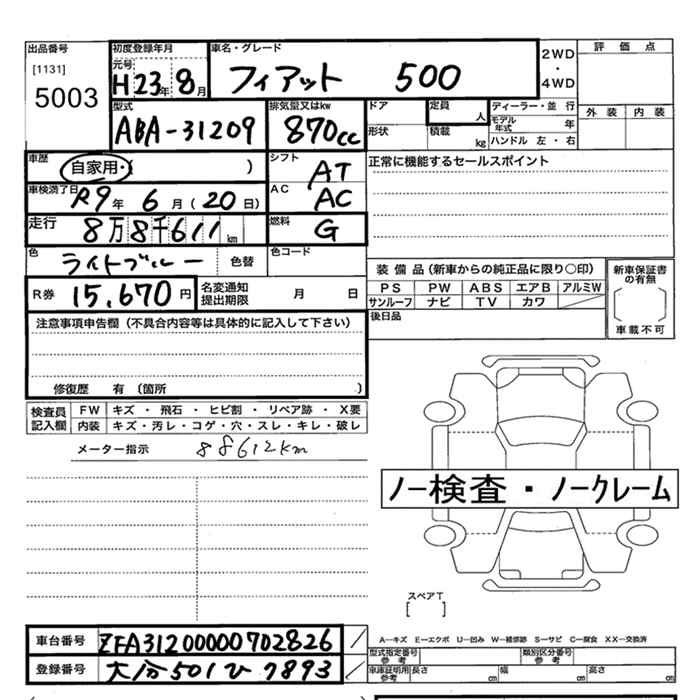 出品番号 初度登録年月 車名・グレード 2WD・4WD 評価点
[1131] 元号
5003 H23年8月 フィアット 500
型式 排気量又はkw ドア 定員 人 ディーラー・並行 外装 内装
ABA-31209 870cc 形状 積載 kg モデル年式 年
ハンドル 左・右
車歴 自家用・( ) シフト AT 正常に機能するセールスポイント
車検満了日 R9年 6月(20日) AC AC
走行 8万8千611km 燃料 G
色 ライトブルー 色替 色コード
装備品(新車からの純正品に限り○印) 新車保証書の有無
R券 15,670円 名変通知提出期限 月 日 PS PW ABS エアB アルミW
サンルーフ ナビ TV カワ
注意事項申告欄(不具合内容等は具体的に記入して下さい) 後日品 車載不可
修復歴 有 〔箇所 〕
検査員記入欄 FW キズ ・ 飛石 ・ ヒビ割 ・ リペア跡 ・ X要
内装 キズ・汚レ・コゲ・穴・スレ・キレ・破レ
メーター指示 88612km
ノー検査・ノークレーム
スペアT
[ ]
A―キズ E―エクボ U―凹み W―補修跡 S―サビ C―腐食 XX―交換済
車台番号 ZFA31200000702826 型式指定番号 参考 類別区分番号 参考
登録番号 大分501ひ7893 車庫証明用 参考 長さ cm 幅 cm 高さ cm